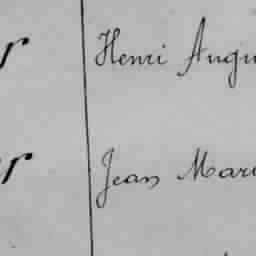 Henri Augu
Jean Mari